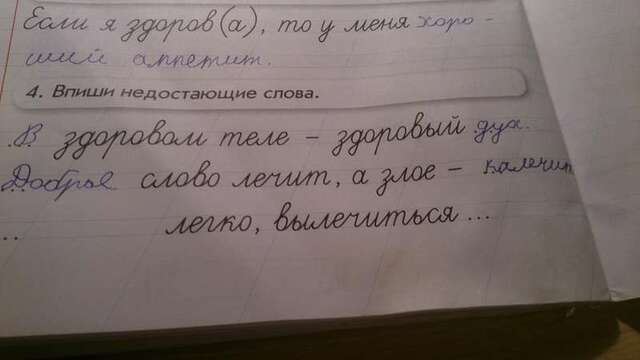 Если я здоров(а), то у меня хоро-
ший аппетит.
4. Впиши недостающие слова.
В здоровом теле – здоровый дух.
Добрые слово лечит, а злое – калечит
.. легко, вылечиться ...